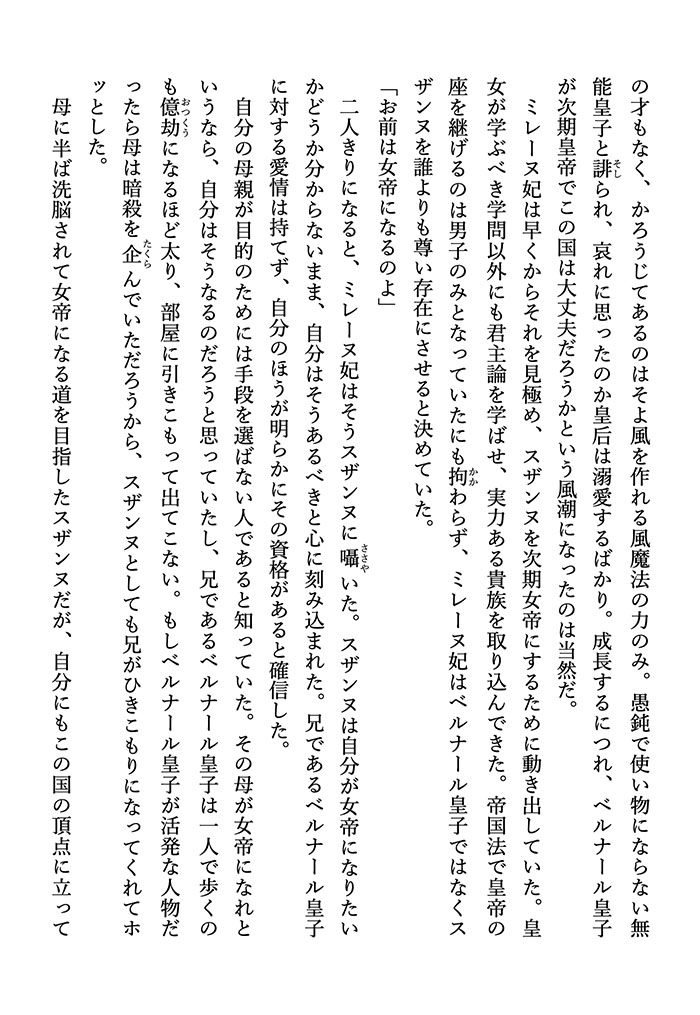 の才もなく、かろうじてあるのはそよ風を作れる風魔法の力のみ。愚鈍で使い物にならない無
能皇子と誹られ、哀れに思ったのか皇后は溺愛するばかり。成長するにつれ、ベルナール皇子
が次期皇帝でこの国は大丈夫だろうかという風潮になったのは当然だ。
　ミレーヌ妃は早くからそれを見極め、スザンヌを次期女帝にするために動き出していた。皇
女が学ぶべき学問以外にも君主論を学ばせ、実力ある貴族を取り込んできた。帝国法で皇帝の
座を継げるのは男子のみとなっていたにも拘わらず、ミレーヌ妃はベルナール皇子ではなくス
ザンヌを誰よりも尊い存在にさせると決めていた。
「お前は女帝になるのよ」
　二人きりになると、ミレーヌ妃はそうスザンヌに囁いた。スザンヌは自分が女帝になりたい
かどうか分からないまま、自分はそうあるべきと心に刻み込まれた。兄であるベルナール皇子
に対する愛情は持てず、自分のほうが明らかにその資格があると確信した。
　自分の母親が目的のためには手段を選ばない人であると知っていた。その母が女帝になれと
いうなら、自分はそうなるのだろうと思っていたし、兄であるベルナール皇子は一人で歩くの
も億劫になるほど太り、部屋に引きこもって出てこない。もしベルナール皇子が活発な人物だ
ったら母は暗殺を企んでいただろうから、スザンヌとしても兄がひきこもりになってくれてホ
ッとした。
　母に半ば洗脳されて女帝になる道を目指したスザンヌだが、自分にもこの国の頂点に立って